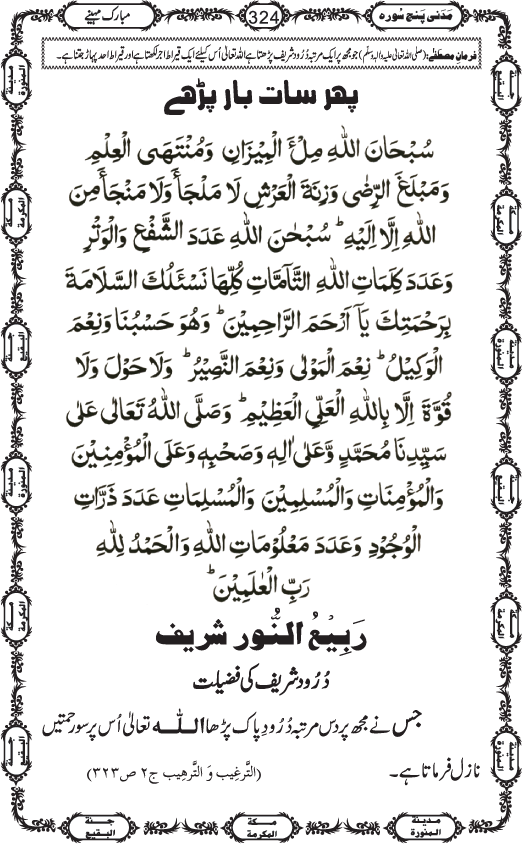 مَدَنی پنج سُورہ
324
مبارک مہینے
فرمانِ مصطفٰے: (صلی اللہ تعالیٰ علیہ واٰلہٖ وسلّم) جو مجھ پر ایک مرتبہ دُرُود شریف پڑھتا ہے اللہ تعالیٰ اُس کیلئے ایک قیراط اجر لکھتا ہے اور قیراط احد پہاڑ جتنا ہے۔
پھر سات بار پڑھے
سُبْحَانَ اللهِ مِلْءَ الْمِيْزَانِ وَمُنْتَهَى الْعِلْمِ
وَمَبْلَغَ الرِّضٰى وَزِنَةَ الْعَرْشِ لَا مَلْجَأَ وَلَا مَنْجَأَ مِنَ
اللهِ اِلَّا اِلَيْهِ ؕ سُبْحٰنَ اللهِ عَدَدَ الشَّفْعِ وَالْوَتْرِ
وَعَدَدَ كَلِمَاتِ اللهِ التَّآمَّاتِ كُلِّهَا نَسْئَلُكَ السَّلَامَةَ
بِرَحْمَتِكَ يَآ اَرْحَمَ الرَّاحِمِيْنَ ؕ وَهُوَ حَسْبُنَا وَنِعْمَ
الْوَكِيْلُ ؕ نِعْمَ الْمَوْلٰى وَنِعْمَ النَّصِيْرُ ؕ وَلَا حَوْلَ وَلَا
قُوَّةَ اِلَّا بِاللهِ الْعَلِيِّ الْعَظِيْمِ ؕ وَصَلَّى اللهُ تَعَالٰى عَلٰى
سَيِّدِنَا مُحَمَّدٍ وَّعَلٰى اٰلِهٖ وَصَحْبِهٖ وَعَلَى الْمُؤْمِنِيْنَ
وَالْمُؤْمِنَاتِ وَالْمُسْلِمِيْنَ وَالْمُسْلِمَاتِ عَدَدَ ذَرَّاتِ
الْوُجُوْدِ وَعَدَدَ مَعْلُوْمَاتِ اللهِ وَالْحَمْدُ لِلّٰهِ
رَبِّ الْعٰلَمِيْنَ ؕ
رَبِیْعُ النُّور شریف
دُرُود شریف کی فضیلت
جس نے مجھ پر دس مرتبہ دُرُودِ پاک پڑھا اللہ تعالیٰ اُس پر سو رحمتیں
نازِل فرماتا ہے۔ (التَّرغِیب وَ التَّرھِیب ج۲ ص۳۲۳)
مدینۃ المنورۃ
جنۃ البقیع
مکۃ المکرمۃ
مکۃ المکرمۃ
جنۃ البقیع
مدینۃ المنورۃ
مدینۃ المنورۃ
جنۃ البقیع
مکۃ المکرمۃ
مکۃ المکرمۃ
جنۃ البقیع
مدینۃ المنورۃ
جنۃ البقیع
مکۃ المکرمۃ
مدینۃ المنورۃ